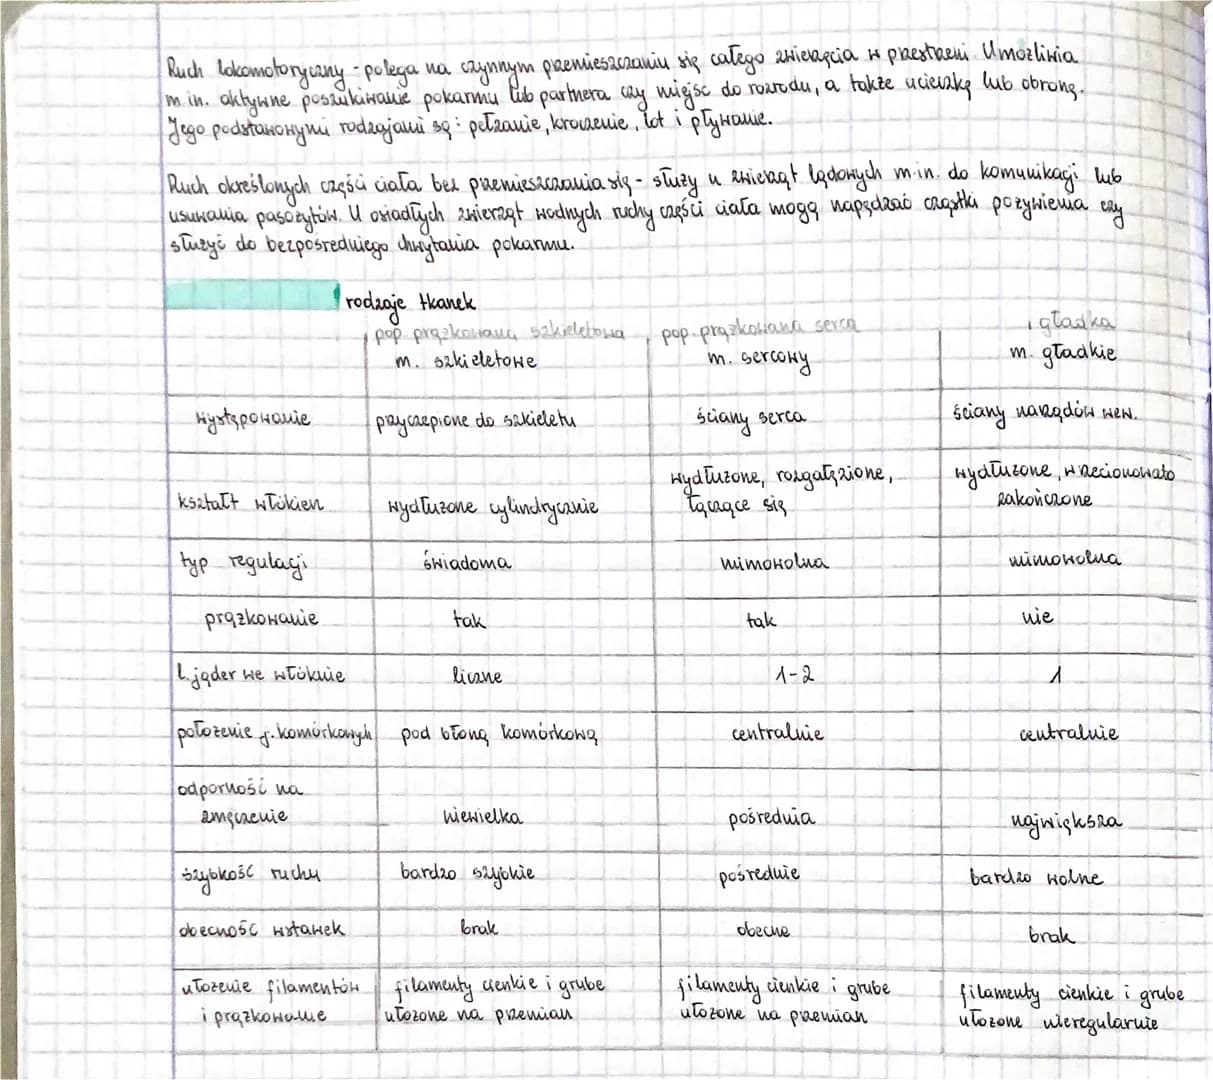 Ruch lokomotoryczny - polega na czynnym przemieszczaniu się całego zwierzęcia w przestrzeni. Umożliwia
m.in. aktywne poszukiwanie pokarmu lub partnera czy miejsc do rozrodu, a także ucieczkę lub obronę.
Jego podstawowymi rodzajami są: pełzanie, kroczenie, lot i pływanie.
Ruch określonych części ciała bez przemieszczania się - służy u zwierząt lądowych m.in. do komunikacji lub
usuwania pasożytów. U osiadłych zwierząt wodnych ruchy części ciała mogą napędzać cząstki pożywienia czy
służyć do bezpośredniego chwytania pokarmu.
rodzaje tkanek
pop. prążkowana szkieletowa pop. prążkowana serca gładka
m. szkieletowe m. sercowy m. gładkie
występowanie przyczepione do szkieletu ściany serca ściany narządów wew.
kształt włókien wydłużone cylindrycznie wydłużone, rozgałęzione, łączące się wydłużone, wrzecionowato zakończone
typ regulacji świadoma mimowolna mimowolna
prążkowanie tak tak nie
l. jąder we włóknie liczne 1-2 1
położenie j. komórkowych pod błoną komórkową centralnie centralnie
odporność na zmęczenie niewielka pośrednia największa
szybkość ruchu bardzo szybkie pośrednie bardzo wolne
obecność wstawek brak obecne brak
ułożenie filamentów i prążkowanie filamenty cienkie i grube ułożone na przemian filamenty cienkie i grube ułożone na przemian filamenty cienkie i grube ułożone nieregularnie